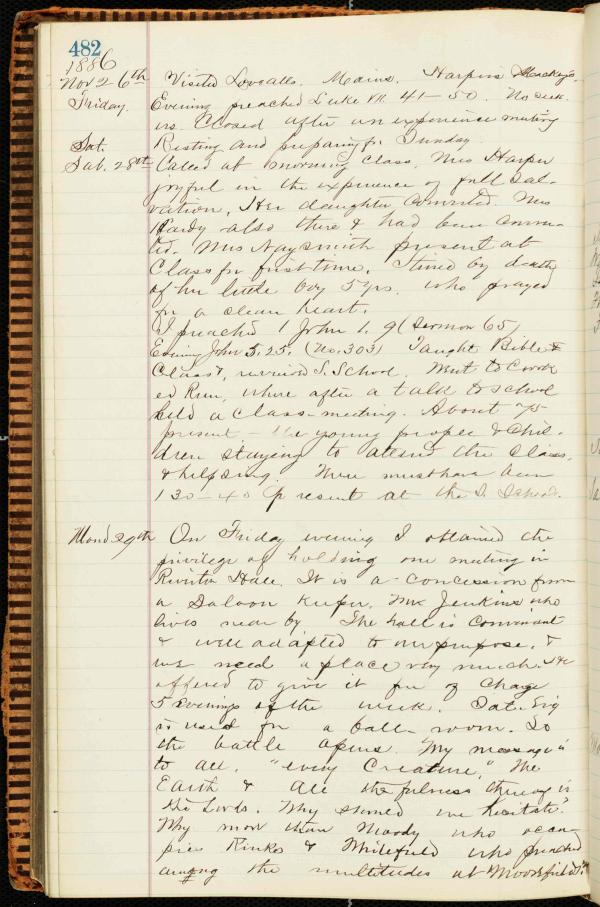 482
1886
Nov 26th Visited Lovealls. Mains. Harpers Mackeys.
Friday. Evening preached Luke VII. 41-50. No seek-
ers. Closed after an experience meeting
Sat. Resting and preparing for Sunday.
Sab. 28th Called at morning class. Mrs Harper
joyful in the experience of full sal-
vation, Her daughter converted. Mrs
Hardy also there & had been conver-
ted. Mrs Naysmith present at
Class for first time. Stired by death
of her little boy 5 yrs. who prayed
for a clean heart.
I preached 1 John 1. 9 (Sermon 65)
Evening John 5. 25. (No. 303) Taught Bible
Class &, reviewed S. School. Went to Crook-
ed Run, where after a talk to school
held a class-meeting. About 75
present - the young people & chil-
dren staying to attend the class.
& help sing. There must have been
130-40 present at the S. School.
Mond 29th On Friday evening I obtained the
privilege of holding one meeting in
Hall. It is a concession from
a Saloon keeper. Mr Jenkins who
lives near by The hall is convenient
& well adapted to our purpose. &
we need a place very much. He
offered to give it free of charge
5 evenings of the week. Sat. Evg
is used for a ball-room. So
the battle opens. My message is
to all. "every Creature." The
Earth & all the fulness thereof is
the Lords. Why should we hesitate?
Why more than Moody who occu-
pies Rinks & Whitefield who preached
among the multitudes at Moorsfields?